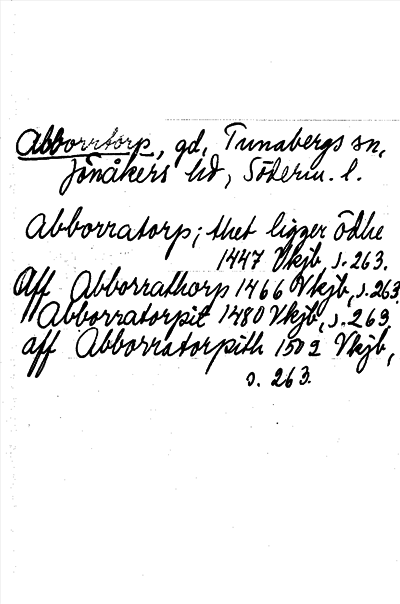 Abborrtorp, gd, Tunabergs sn,
Jönåkers hd, Söderm. l.
Abborratorp; thet ligger ödhe
1447 Vkjb, s. 263.
Aff Abborrathorp 1466 Vkjb, s. 263
Abborratorpit 1480 Vkjb, s. 263
aff Abborratorpith 1502 Vkjb,
s. 263.